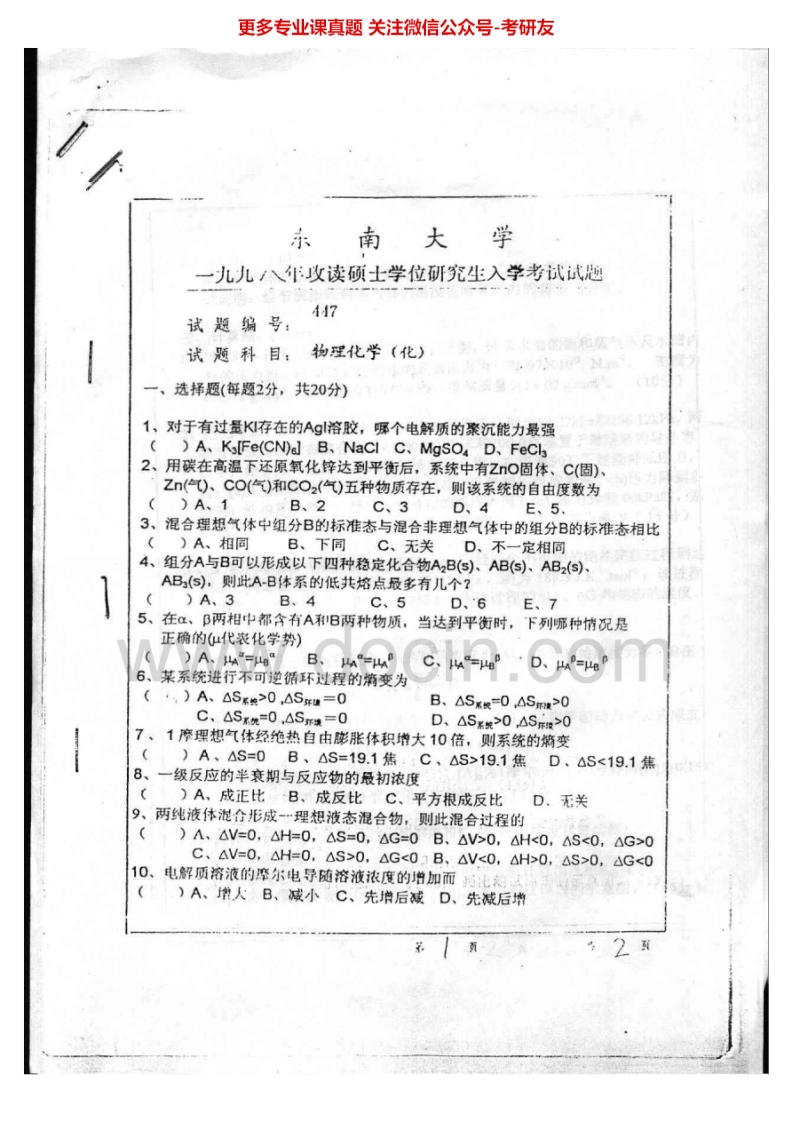 更多专业课真题 关注微信公众号-考研友
东 南 大 学
一九九八年攻读硕士学位研究生入学考试试题
试题编号: 447
试题科目: 物理化学(化)
一、选择题(每题2分，共20分)
1、对于有过量KI存在的AgI溶胶，哪个电解质的聚沉能力最强
( )A、K₃[Fe(CN)₆] B、NaCl C、MgSO₄ D、FeCl₃
2、用碳在高温下还原氧化锌达到平衡后，系统中有ZnO固体、C(固)、
Zn(气)、CO(气)和CO₂(气)五种物质存在，则该系统的自由度数为
( )A、1 B、2 C、3 D、4 E、5、
3、混合理想气体中组分B的标准态与混合非理想气体中的组分B的标准态相比
( )A、相同 B、下同 C、无关 D、不一定相同
4、组分A与B可以形成以下四种稳定化合物A₂B(s)、AB(s)、AB₂(s)、
AB₃(s)，则此A-B体系的低共熔点最多有几个?
( )A、3 B、4 C、5 D、6 E、7
5、在α、β两相中都含有A和B两种物质，当达到平衡时，下列哪种情况是
正确的(μ代表化学势)
( )A、μA^α=μB^α B、μA^α=μA^β C、μA^α=μB^β D、μA^β=μB^β
www.docin.com
6、某系统进行不可逆循环过程的熵变为
( )A、ΔS系统>0 ,ΔS环境=0 B、ΔS系统=0 ,ΔS环境>0
C、ΔS系统=0 ,ΔS环境=0 D、ΔS系统>0 ,ΔS环境>0
7、1摩理想气体经绝热自由膨胀体积增大10倍，则系统的熵变
( )A、ΔS=0 B、ΔS=19.1焦 C、ΔS>19.1焦 D、ΔS<19.1焦
8、一级反应的半衰期与反应物的最初浓度
( )A、成正比 B、成反比 C、平方根成反比 D、无关
9、两纯液体混合形成一理想液态混合物，则此混合过程的
( )A、ΔV=0，ΔH=0，ΔS=0，ΔG=0 B、ΔV>0，ΔH<0，ΔS<0，ΔG>0
C、ΔV=0，ΔH=0，ΔS>0，ΔG<0 B、ΔV<0，ΔH>0，ΔS>0，ΔG<0
10、电解质溶液的摩尔电导随溶液浓度的增加而
( )A、增大 B、减小 C、先增后减 D、先减后增
第 1 页 共 2 页